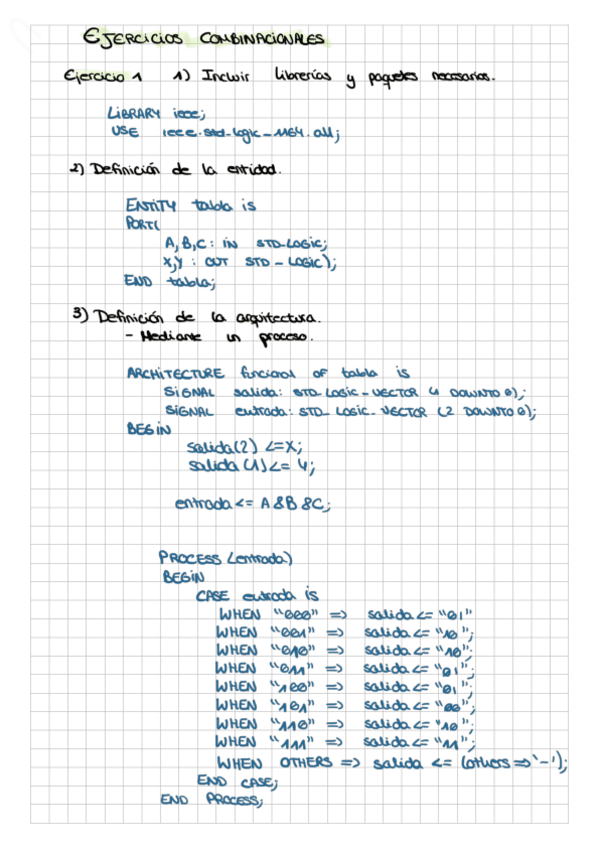 EJERCICIOS COMBINACIONALES
Ejercicio 1 1) Incluir librerías y paquetes necesarios.
LIBRARY ieee;
USE ieee.std-logic-1164.all;
2) Definición de la entidad.
ENTITY tabla is
PORT(
A,B,C: IN STD-LOGIC;
X,Y : OUT STD-LOGIC);
END tabla;
3) Definición de la arquitectura.
- Mediante un proceso.
ARCHITECTURE funcional OF tabla is
SIGNAL salida: STD_LOGIC-VECTOR (1 DOWNTO 0);
SIGNAL entrada: STD_LOGIC-VECTOR (2 DOWNTO 0);
BEGIN
salida(2) <=X;
salida(1)<= Y;
entrada <= A&B&C;
PROCESS (entrada)
BEGIN
CASE entrada is
WHEN "000" => salida <= "01"
WHEN "001" => salida <= "10";
WHEN "010" => salida <= "10";
WHEN "011" => salida <= "01";
WHEN "100" => salida <= "01";
WHEN "101" => salida <= "00";
WHEN "110" => salida <= "10";
WHEN "111" => salida <= "11";
WHEN OTHERS => salida <= (others=>'-');
END CASE;
END PROCESS;